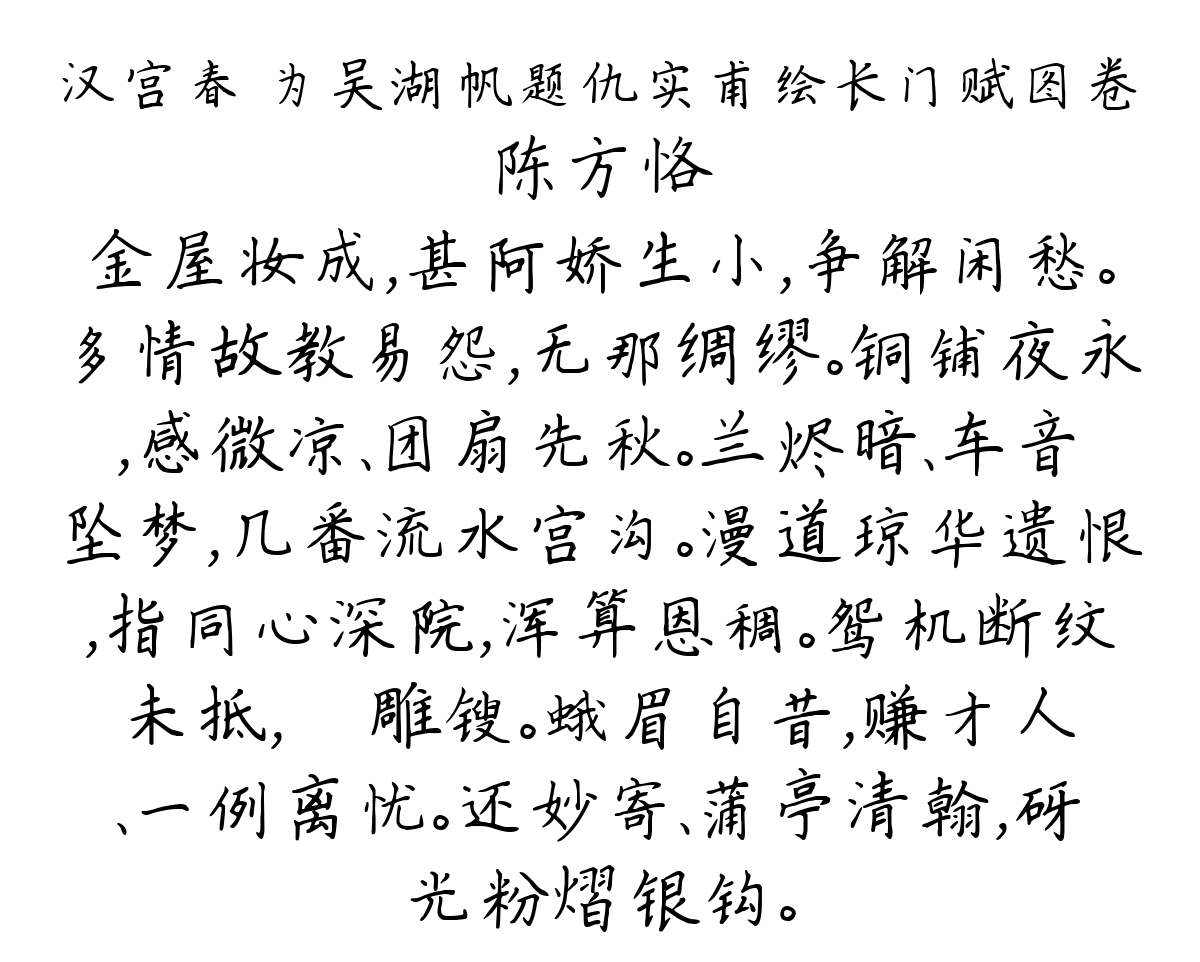 汉宫春 为吴湖帆题仇实甫绘长门赋图卷
陈方恪
金屋妆成,甚阿娇生小,争解闲愁。
多情故教易怨,无那绸缪。铜铺夜永
,感微凉、团扇先秋。兰烬暗、车音
坠梦,几番流水宫沟。漫道琼华遗恨
,指同心深院,浑算恩稠。鸳机断纹
未抵, 雕锼。蛾眉自昔,赚才人
、一例离忧。还妙寄、蒲亭清翰,砑
光粉熠银钩。